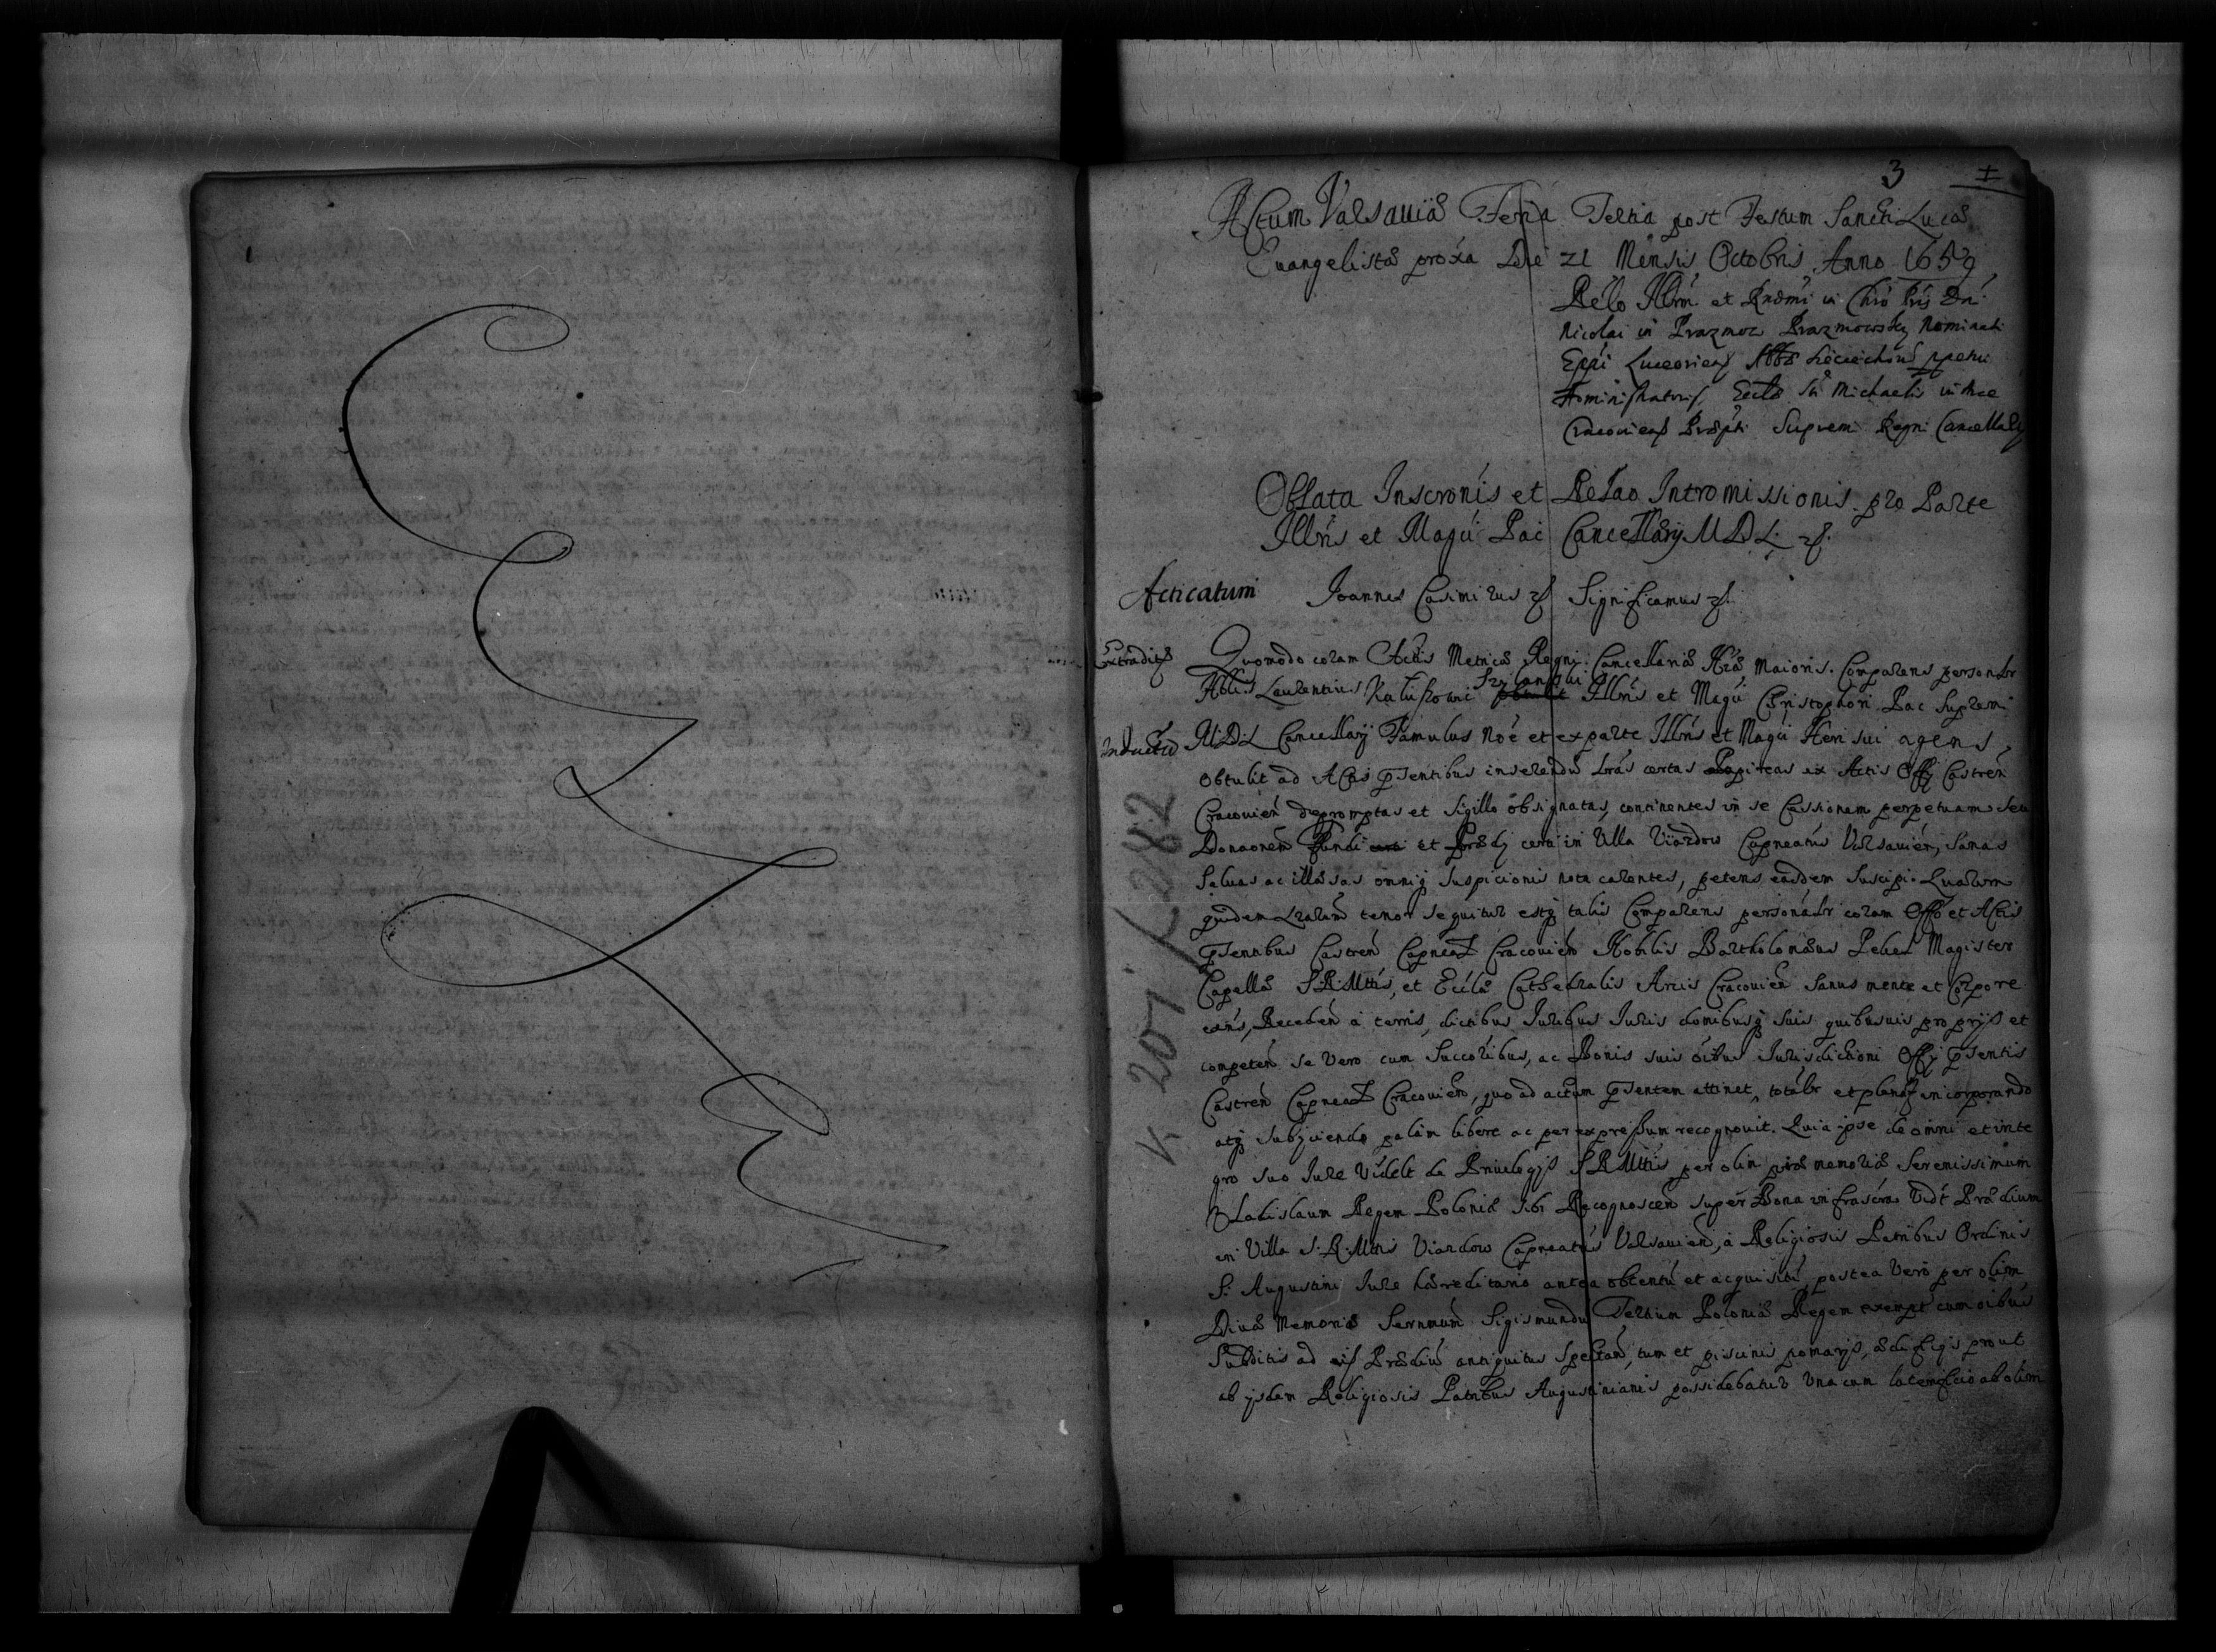 3
Actum Varsauiæ Feria Tertia post Festum Sancti Lucæ
Euangelistæ proxa Die 21 Mensis Octobris Anno 1659
Relõ Illrm̃ et Rndmi in Chrõ Pris Dni
Nicolai in Prazmow Prazmowsky Nominati
Eppi Luceorien
Administratoris Ecclæ Sti Michaelis in Arce
Cracouien Præpti Supremi Regni Cancellarij
Oblata Inscronis et Relao Intromissionis pro Parte
Illris et Magci Pac Cancellarij M D L
Acticatum
Joannes Casimirus Significamus
Extradit
Quomodo coram Actis Metricæ Regni Cancellariæ Nræ Maioris Comparens personalr
Nblis Laurentius Illris et Magci Christophori Pac Supremi
Inductũ
M.D.L Cancellarij Famulus Noẽ et ex parte Illris et Magci Heri sui agens,
obtulit ad Acta pñtentibus inserendũ Lras certas Papireas ex Actis Offij Castren
Cracouien depromptas et Sigillo obsignatas, continentes in se Cessionem perpetuam seu
Donaonem Fundi et Prædij certi in Villa Viazdow Capneatus Varsauien, sanas
saluas ac illæsas omniq suspicionis nota carentes, petens easdem suscipi. Quarum
quidem Lrarum tenor sequitur estq talis Comparens personalr coram Offo et Actis
psentibus Castren Capneal Cracouien Nobilis Bartholomæus Pekel Magister
Capellæ S.R.Mttis, et Ecclæ Cathedralis Arcis Cracouien sanus mente et Corpore
exns, Receden à terris, dictibus Juribus Juris donibusq suis quibusuis proprijs et
competen se vero cum Succoribus, ac Bonis suis oibus Jurisdictioni Offij psentis
Castren Capneal Cracouien, quo ad actum psentem attinet, totalr et plenarie incorporando
atq subijciendo palam libere ac per expressum recognouit. Quia ipse de omni et inte
gro suo Jure Videlt de Priuilegijs S R Mttis per olim piæ memoriæ Serenissimum
Vladislaum Regem Poloniæ sibi Recognoscen super Bona infrascra Vidt Prædium
in Villa S.R.Mttis Viazdow Capneatus Varsauien, à Religiosis Patribus Ordinis
S. Augustini Jure hæreditario antea obtentũ et acquisitũ postea Vero per olim
Diuæ Memoriæ Sernmum Sigismundũ Tertium Poloniæ Regem exempt cum oibus
Subditis ad Prædiũ antiquitus Spectan, tum et piscinis pomarijs, ædificijs prout
ab ijsdem Religiosis Patribus Augustinianis possidebatur Una cum ab olim
K 207 K 282